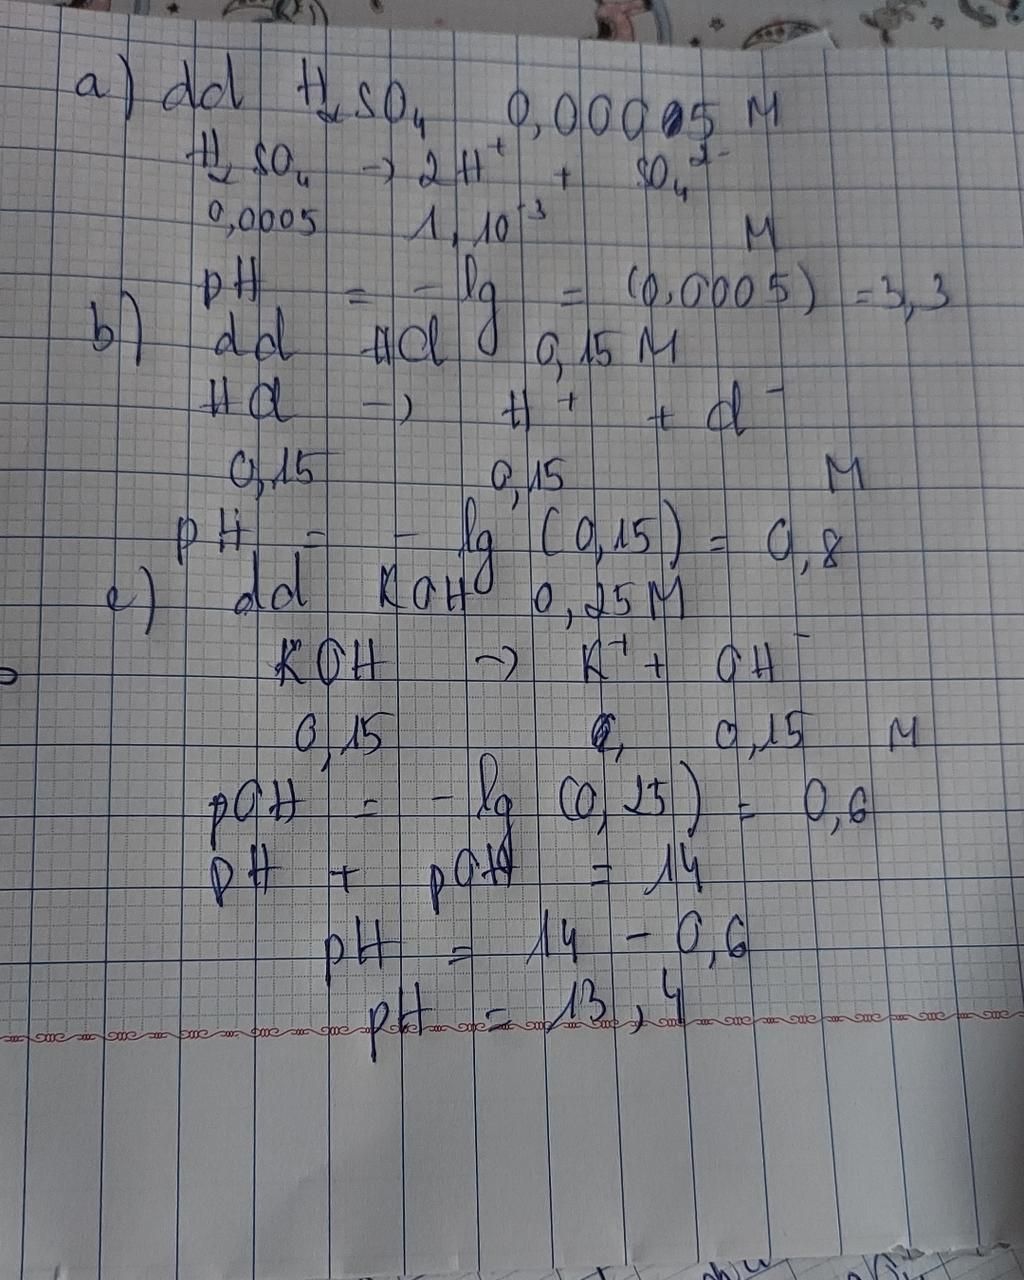 a) dd H₂SO₄ 0,0005 M
H₂SO₄ → 2H⁺ + SO₄²⁻
0,0005 1,10⁻³ M
pH = - lg = (0,0005) = 3,3
b) dd HCl 0,15 M
HCl → H⁺ + Cl⁻
0,15 0,15 M
pH = - lg (0,15) = 0,8
c) dd KOH 0,25 M
KOH → K⁺ + OH⁻
0,15 0,15 M
pOH = - lg (0,25) = 0,6
pH + pOH = 14
pH = 14 - 0,6
pH = 13,4